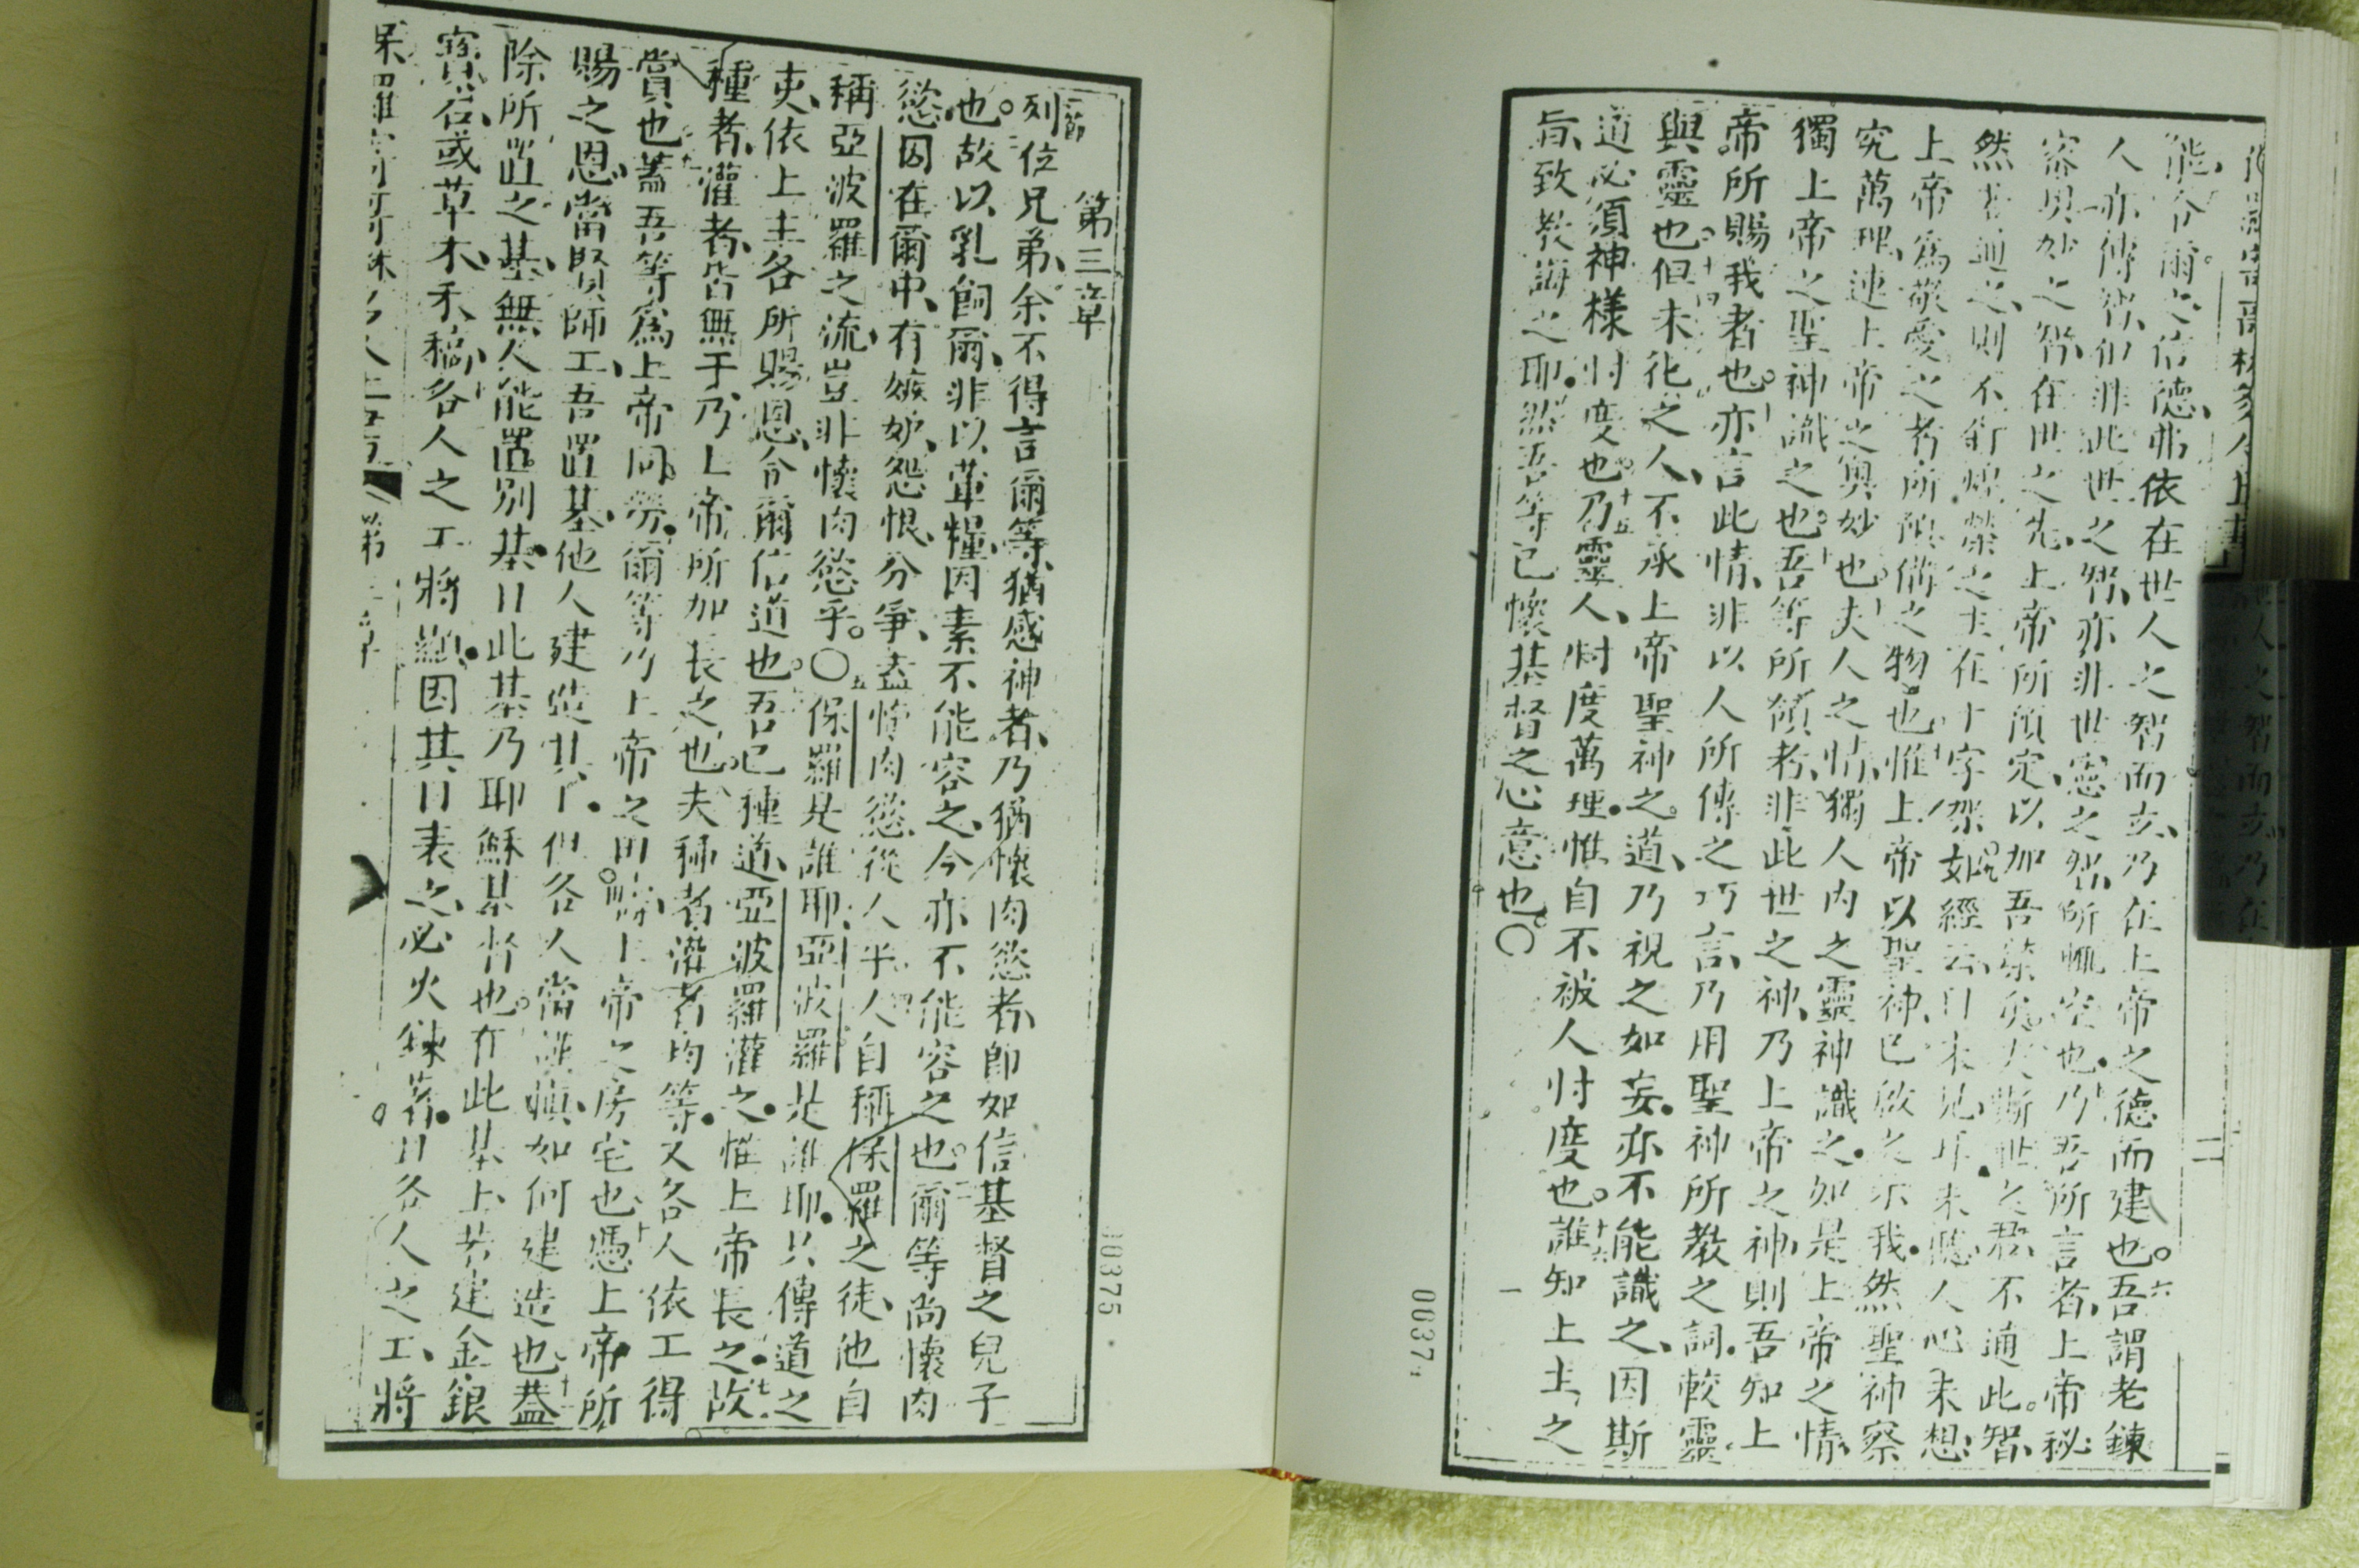 能令爾之信德弗依在世人之智而立乃在上帝之德而建也。六吾謂老鍊
人亦傳智但非此世之智亦非世憲之智所輒空也乃吾所言者上帝秘
密奧妙之智在世之先上帝所預定以加吾榮矣夫斯世之君不通此。智
然若通之則不釘煌榮之主在十字架如經云目未見耳未聽人心未想
上帝為敬愛之者所預備之物也惟上帝以聖神已啟之示我然聖神察
究萬理連上帝之奧妙也夫人之情獨人內之靈神識之如是上帝之情
獨上帝之聖神識之也吾等所領者非此世之神乃上帝之神則吾知上
帝所賜我者也亦言此情非以人所傳之巧言乃用聖神所教之詞較靈
與靈也十四但未化之人不承上帝聖神之道乃視之如妄亦不能識之因斯
道必須神樣忖度也十五乃靈人忖度萬理惟自不被人忖度也。十六誰知上主之
旨致教誨之耶然吾等已懷基督之心意也。〇
二
0037
第三章
一節
列位兄弟余不得言爾等猶感神者乃猶懷肉慾者即如信基督之兒子
也。二故以乳飼爾非以葷糧因素不能容之今亦不能容之也。三爾等尚懷肉
慾因在爾中有嫉妒怨恨分爭盍懷肉慾從人乎四人自稱保羅之徒他自
稱亞波羅之流豈非懷肉慾乎。〇五保羅是誰耶亞波羅是誰耶只傳道之
吏依上主各所賜恩令爾信道也吾已種道亞波羅灌之惟上帝長之七故
種者灌者皆無于乃上帝所加長之也夫種者灌者均等又各人依工得
賞也蓋吾等為上帝同勞爾等乃上帝之田疇上帝之房宅也十憑上帝所
賜之恩當賢師工吾置基他人建造其上但各人當謹慎如何建造也十一蓋
除所置之基無人能置別基此基乃耶穌基督也在此基上若建金銀
寶石或草木禾稿各人之工將顯因其日表之必火鍊著各人之工將
00375